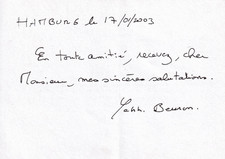 HAMBURG le 17/01/2003
En toute amitié, recevez, cher
Monsieur, mes sincères salutations.